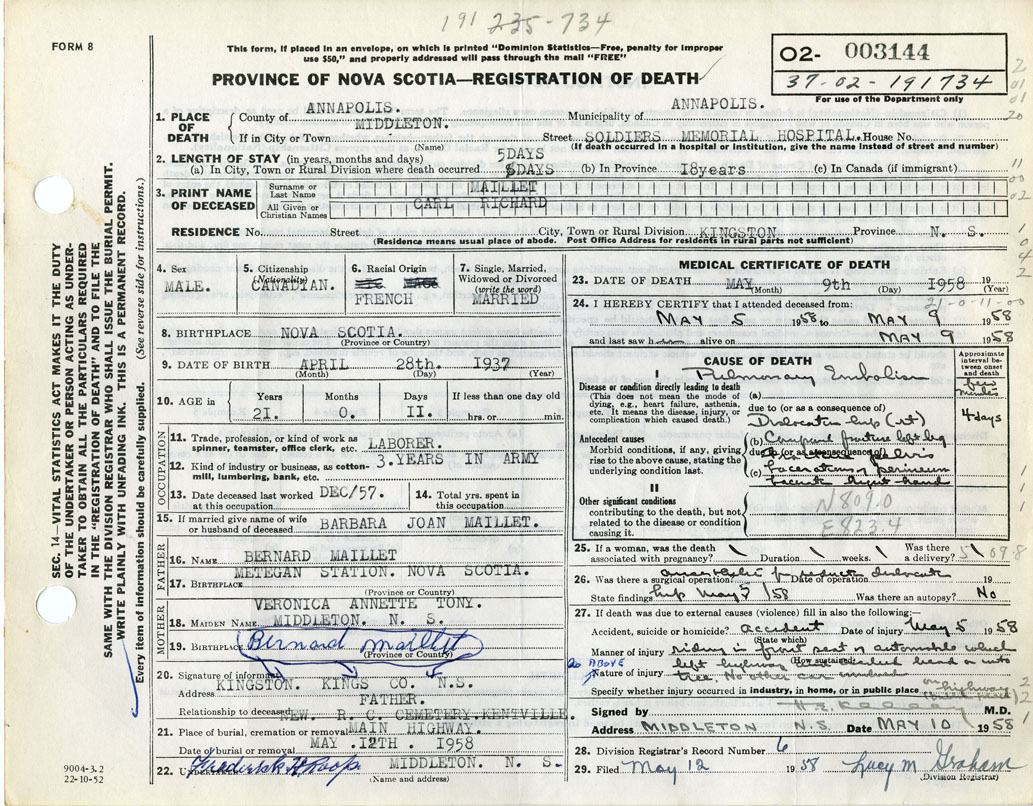 191 235-734
FORM 8
This form, if placed in an envelope, on which is printed "Dominion Statistics—Free, penalty for improper
use $50," and properly addressed will pass through the mail "FREE"
PROVINCE OF NOVA SCOTIA—REGISTRATION OF DEATH
O2- 003144
37-02-191734
For use of the Department only
SEC. 14—VITAL STATISTICS ACT MAKES IT THE DUTY
OF THE UNDERTAKER OR PERSON ACTING AS UNDER-
TAKER TO OBTAIN ALL THE PARTICULARS REQUIRED
IN THE "REGISTRATION OF DEATH" AND TO FILE THE
SAME WITH THE DIVISION REGISTRAR WHO SHALL ISSUE THE BURIAL PERMIT.
WRITE PLAINLY WITH UNFADING INK. THIS IS A PERMANENT RECORD.
Every item of information should be carefully supplied. (See reverse side for instructions.)
1. PLACE OF DEATH
County of ANNAPOLIS. Municipality of ANNAPOLIS.
If in City or Town MIDDLETON. Street SOLDIERS MEMORIAL HOSPITAL. House No.
(Name) (If death occurred in a hospital or institution, give the name instead of street and number)
2. LENGTH OF STAY (in years, months and days) 5DAYS
(a) In City, Town or Rural Division where death occurred DAYS (b) In Province 18years (c) In Canada (if immigrant)
3. PRINT NAME OF DECEASED
Surname or Last Name MAILLET
All Given or Christian Names CARL RICHARD
RESIDENCE No. Street City, Town or Rural Division KINGSTON Province N. S.
(Residence means usual place of abode. Post Office Address for residents in rural parts not sufficient)
4. Sex MALE.
5. Citizenship (Nationality) CANADIAN.
6. Racial Origin FRENCH
7. Single, Married, Widowed or Divorced (write the word) MARRIED
8. BIRTHPLACE NOVA SCOTIA.
(Province or Country)
9. DATE OF BIRTH APRIL 28th. 1937
(Month) (Day) (Year)
10. AGE in Years Months Days If less than one day old
21. 0. 11. hrs. or min.
OCCUPATION
11. Trade, profession, or kind of work as spinner, teamster, office clerk, etc. LABORER.
12. Kind of industry or business, as cotton-mill, lumbering, bank, etc. 3.YEARS IN ARMY
13. Date deceased last worked at this occupation DEC/57.
14. Total yrs. spent in this occupation
15. If married give name of wife or husband of deceased BARBARA JOAN MAILLET.
FATHER
16. NAME BERNARD MAILLET
17. BIRTHPLACE METEGAN STATION. NOVA SCOTIA.
(Province or Country)
MOTHER
18. MAIDEN NAME VERONICA ANNETTE TONY.
19. BIRTHPLACE MIDDLETON. N. S.
(Province or Country)
Bernard Maillet
20. Signature of informant
Address KINGSTON. KINGS CO. N.S.
Relationship to deceased FATHER.
21. Place of burial, cremation or removal NEW. R. C. CEMETERY.KENTVILLE.
MAIN HIGHWAY.
Date of burial or removal MAY .12TH . 1958
22. UNDERTAKER Frederick H Roop MIDDLETON. N. S.
(Name and address)
9004-3.2
22-10-52
MEDICAL CERTIFICATE OF DEATH
23. DATE OF DEATH MAY 9th 1958 19
(Month) (Day) (Year)
21-0-11-00
24. I HEREBY CERTIFY that I attended deceased from:
MAY 5 1958 to MAY 9 1958
and last saw h alive on MAY 9 1958
CAUSE OF DEATH
Approximate interval between onset and death
I
Disease or condition directly leading to death
(This does not mean the mode of dying, e.g., heart failure, asthenia, etc. It means the disease, injury, or complication which caused death.)
(a) Pulmonary Embolism minutes
due to (or as a consequence of)
Dislocation hip (left) 4 days
Antecedent causes
Morbid conditions, if any, giving rise to the above cause, stating the underlying condition last.
(b) Compound fracture left leg
due to (or as a consequence of)
(c) Lacerations perineum
right hand
II
Other significant conditions
contributing to the death, but not related to the disease or condition causing it.
N809.0
E823.4
25. If a woman, was the death associated with pregnancy? Duration weeks. Was there a delivery?
26. Was there a surgical operation? Date of operation 19
State findings hip May 5/58 Was there an autopsy? No
27. If death was due to external causes (violence) fill in also the following:—
Accident, suicide or homicide? accident Date of injury May 5 1958
(State which)
Manner of injury riding in front seat of automobile which
(How sustained)
as ABOVE
left highway
Nature of injury tree. No other car involved
Specify whether injury occurred in industry, in home, or in public place on highway
Signed by M.D.
Address MIDDLETON N.S. Date MAY 10 1958
28. Division Registrar's Record Number 6
29. Filed May 12 1958 Lucy M Graham
(Division Registrar)